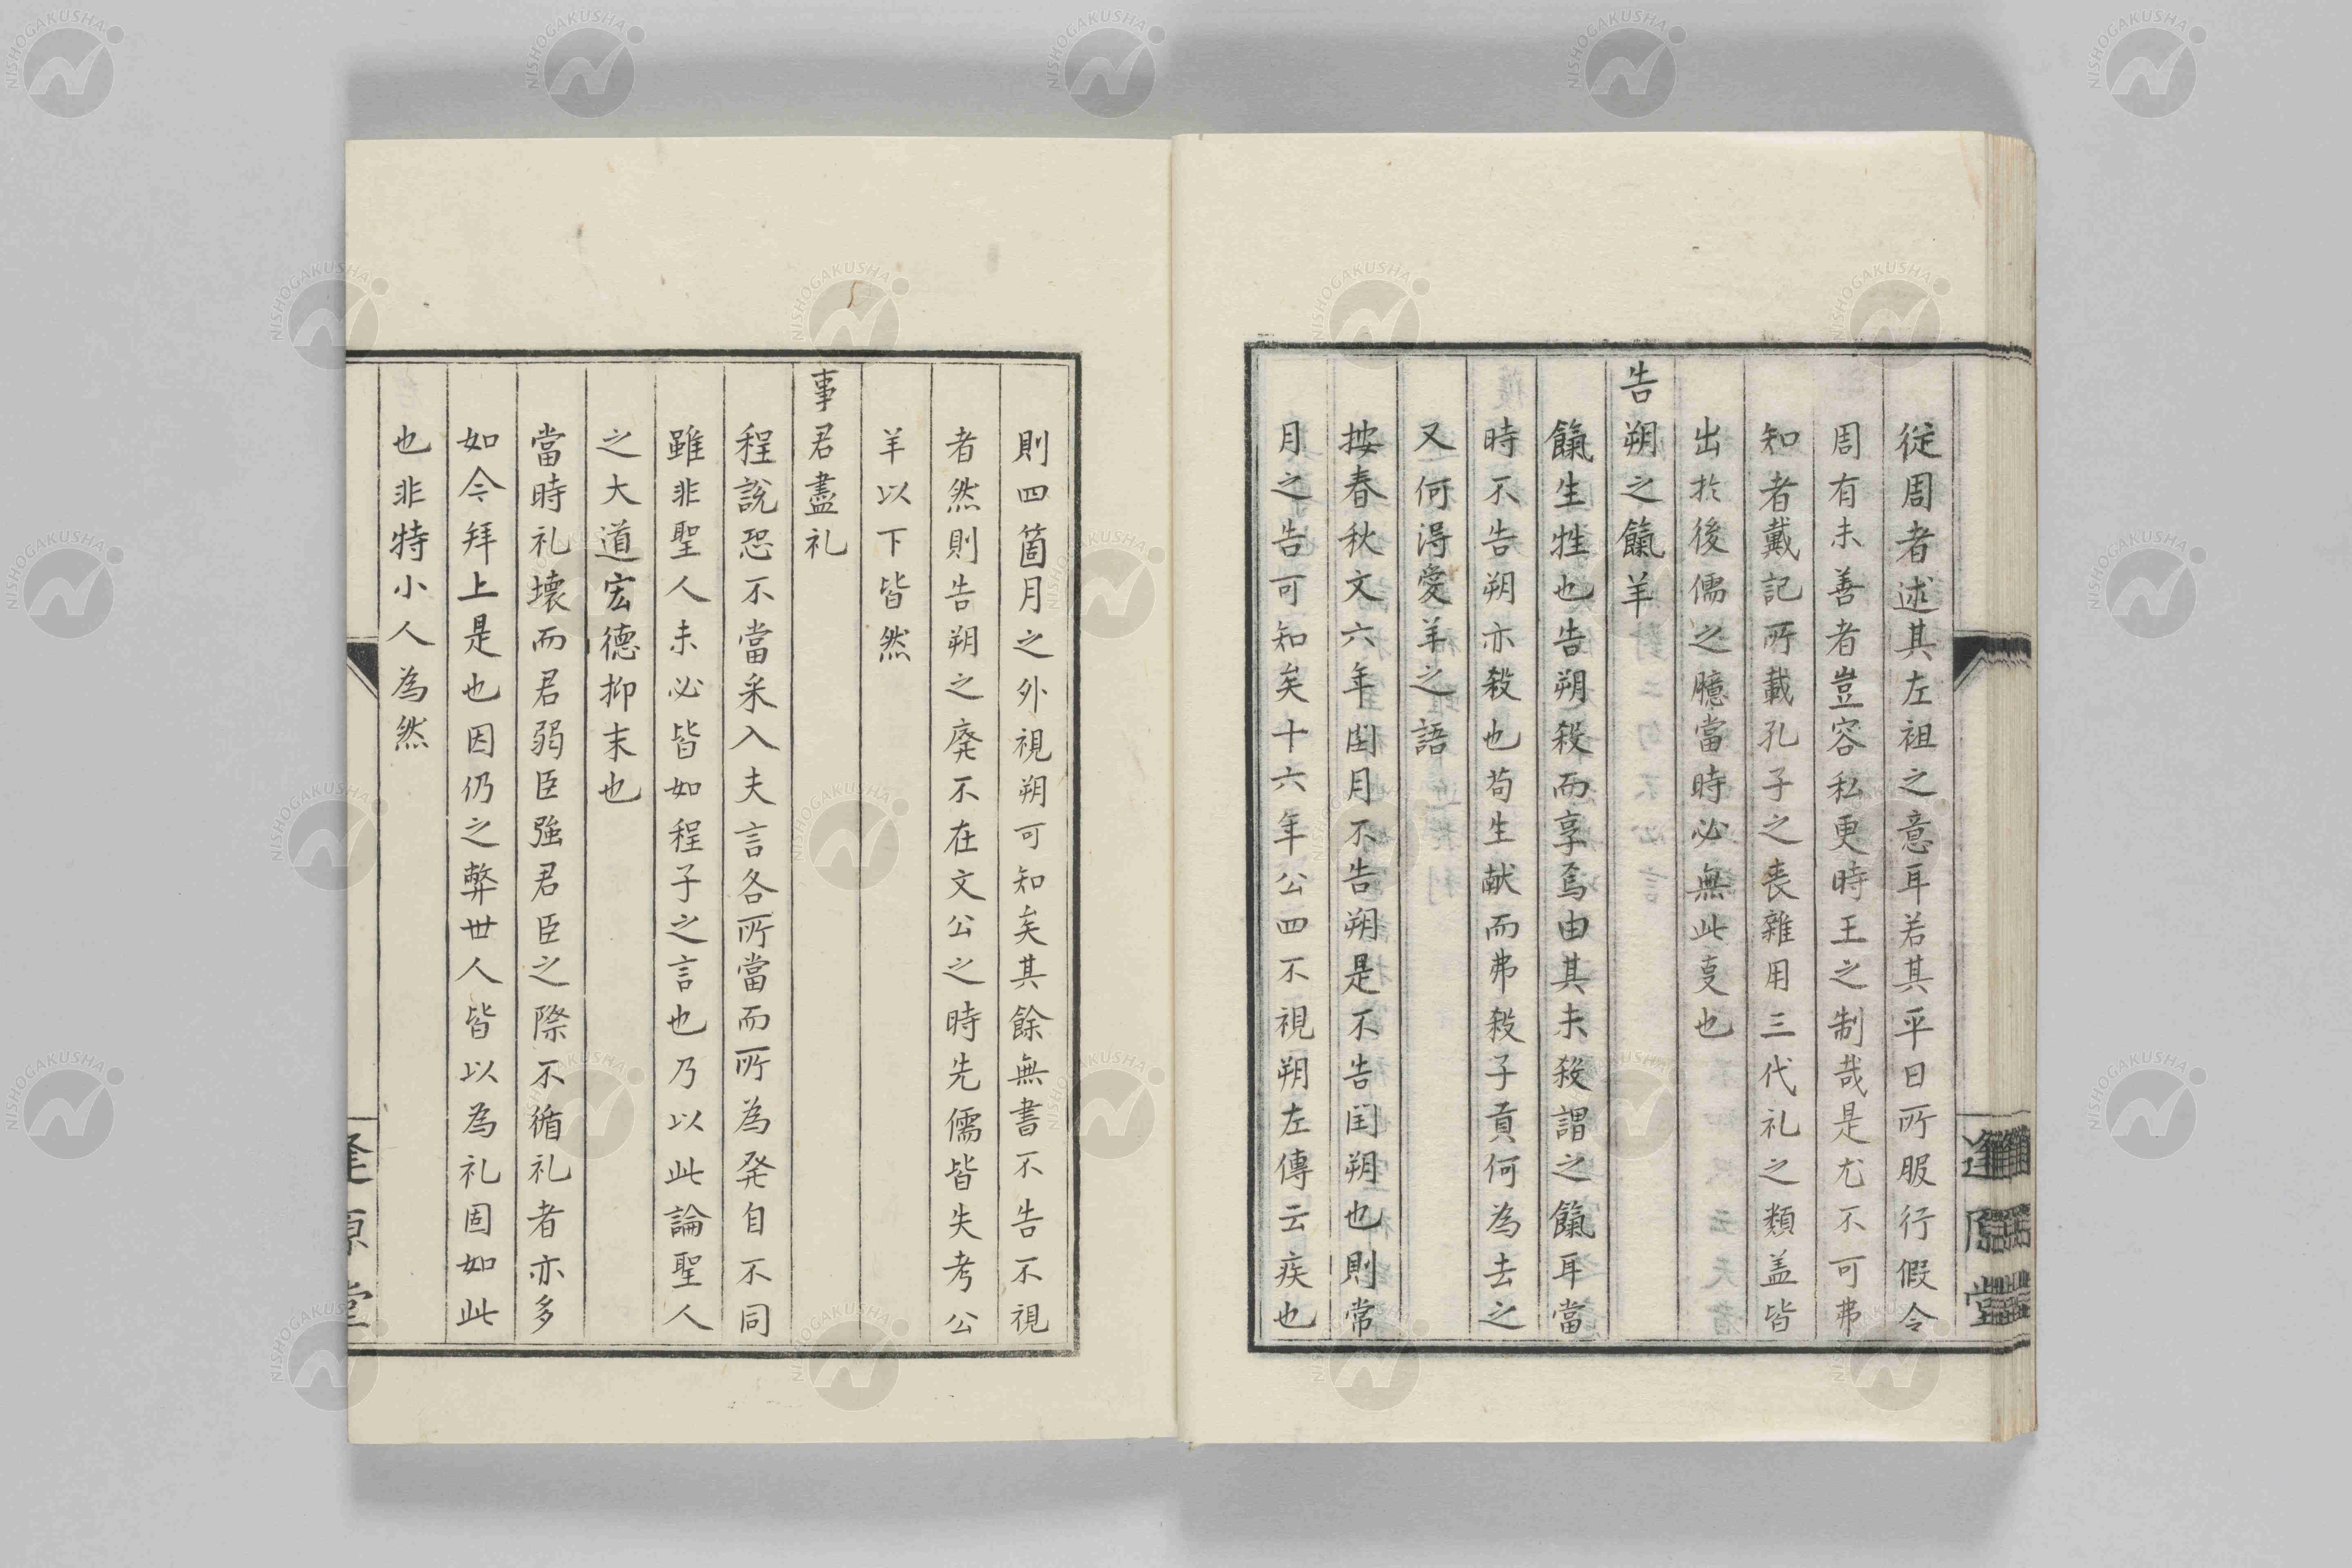 従周者述其左祖之意耳若其平日所服行假令
周有未善者豈容私更時王之制哉是尤不可弗
知者戴記所載孔子之喪雑用三代礼之類盖皆
出於後儒之臆當時必無此叓也
告朔之餼羊
餼生牲也告朔殺而享焉由其未殺謂之餼耳當
時不告朔亦殺也苟生献而弗殺子貢何為去之
又何得愛羊之語
按春秋文六年閏月不告朔是不告閏朔也則常
月之告可知矣十六年公四不視朔左傳云疾也
逢原堂
則四箇月之外視朔可知矣其餘無書不告不視
者然則告朔之廃不在文公之時先儒皆失考公
羊以下皆然
事君盡礼
程說恐不當采入夫言各所當而所為発自不同
雖非聖人未必皆如程子之言也乃以此論聖人
之大道宏德抑末也
當時礼壊而君弱臣強君臣之際不循礼者亦多
如今拜上是也因仍之弊世人皆以為礼固如此
也非特小人為然
逢原堂
NISHOGAKUSHA